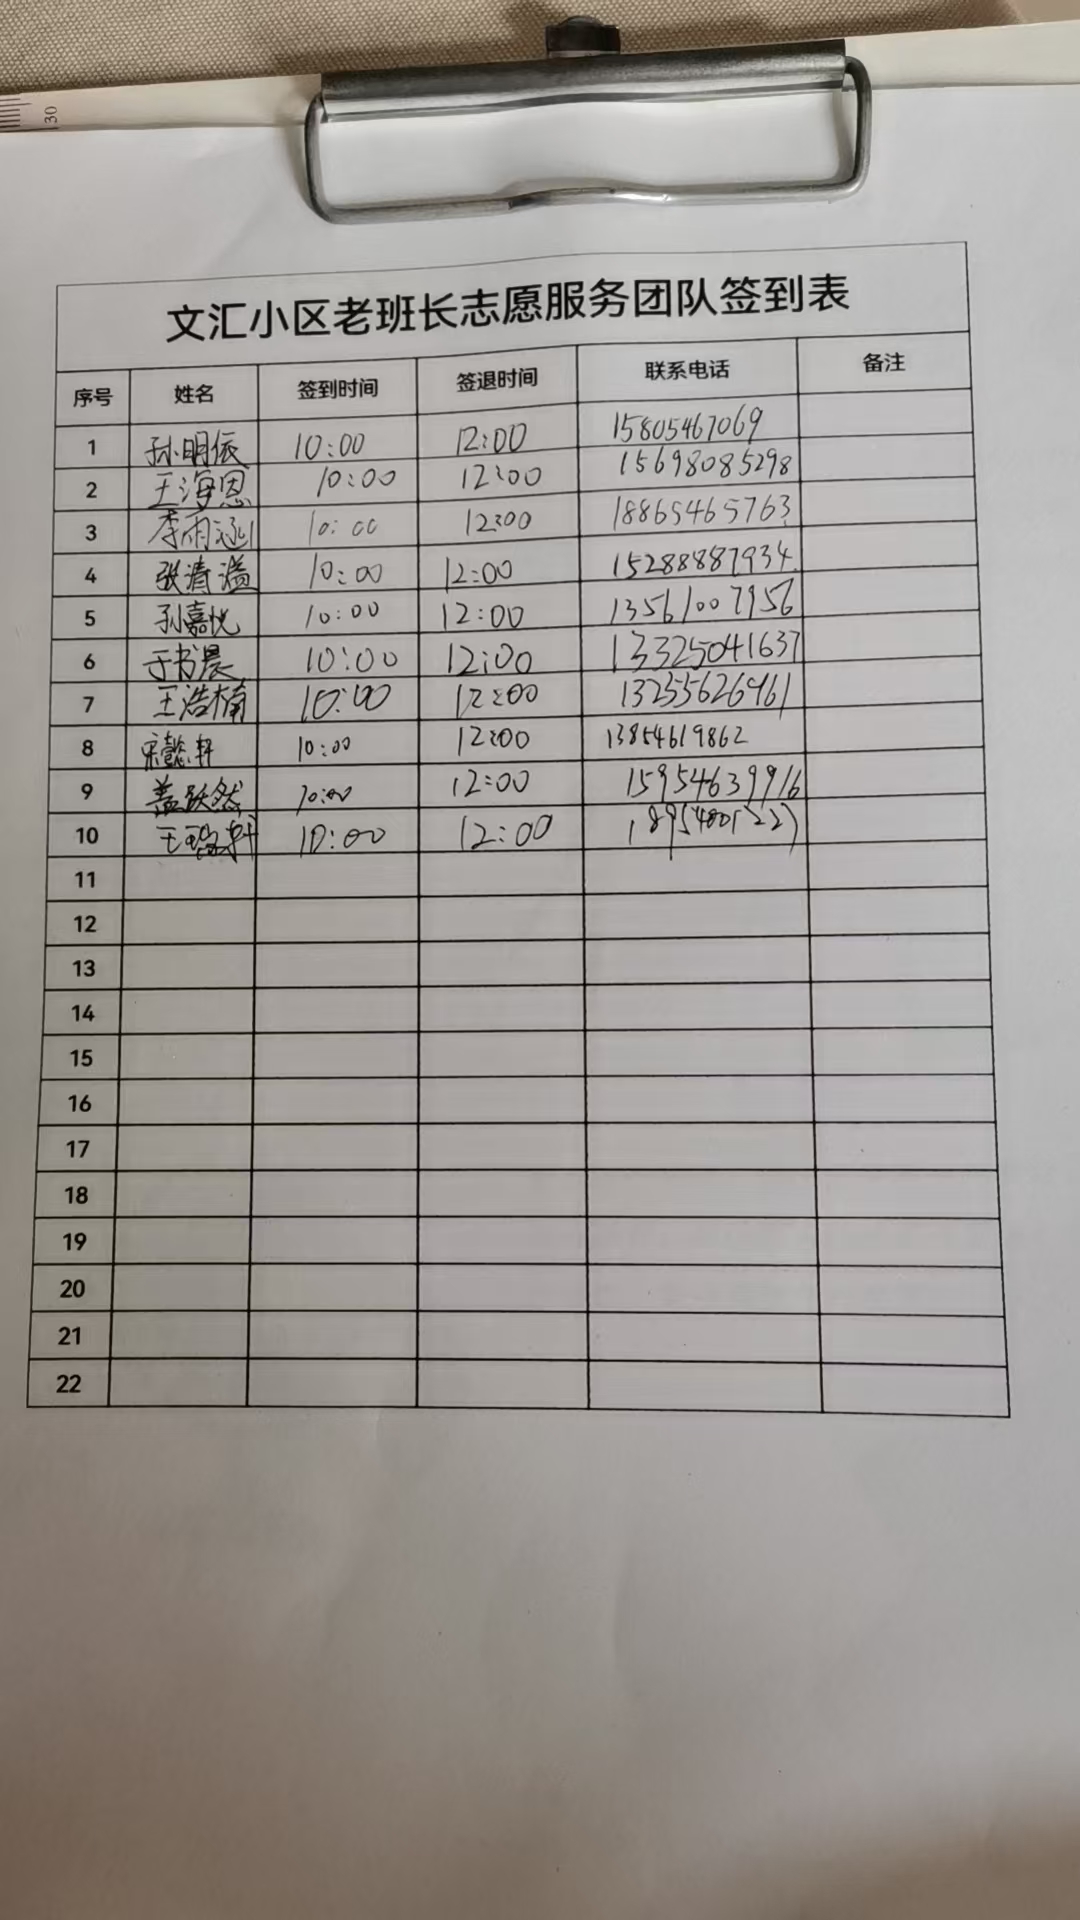 30
文汇小区老班长志愿服务团队签到表
序号 姓名 签到时间 签退时间 联系电话 备注
1 孙明依 10:00 12:00 15805467069
2 王海恩 10:00 12:00 15698085298
3 李雨涵 10:00 12:00 18865465763
4 张清溢 10:00 12:00 15288887934
5 孙嘉悦 10:00 12:00 13561007956
6 于书晨 10:00 12:00 133325041637
7 王浩楠 10:00 12:00 13255626461
8 宋懿轩 10:00 12:00 13854619862
9 盖跃然 10:00 12:00 15954639916
10 10:00 12:00
11
12
13
14
15
16
17
18
19
20
21
22